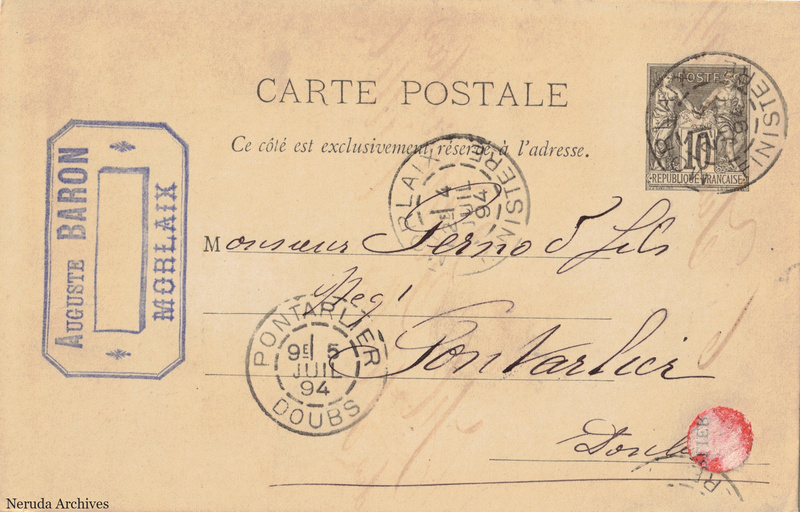 CARTE POSTALE
Ce côté est exclusivement réservé à l'adresse.
POSTES
10
RÉPUBLIQUE FRANÇAISE
AUGUSTE BARON
MORLAIX
RLAIX
2E 4
JUIL
94
FINISTERE
Monsieur Pernod fils
Neg t
Pontarlier
Doubs
PONTARLIER
9E 5
JUIL
94
DOUBS
Neruda Archives